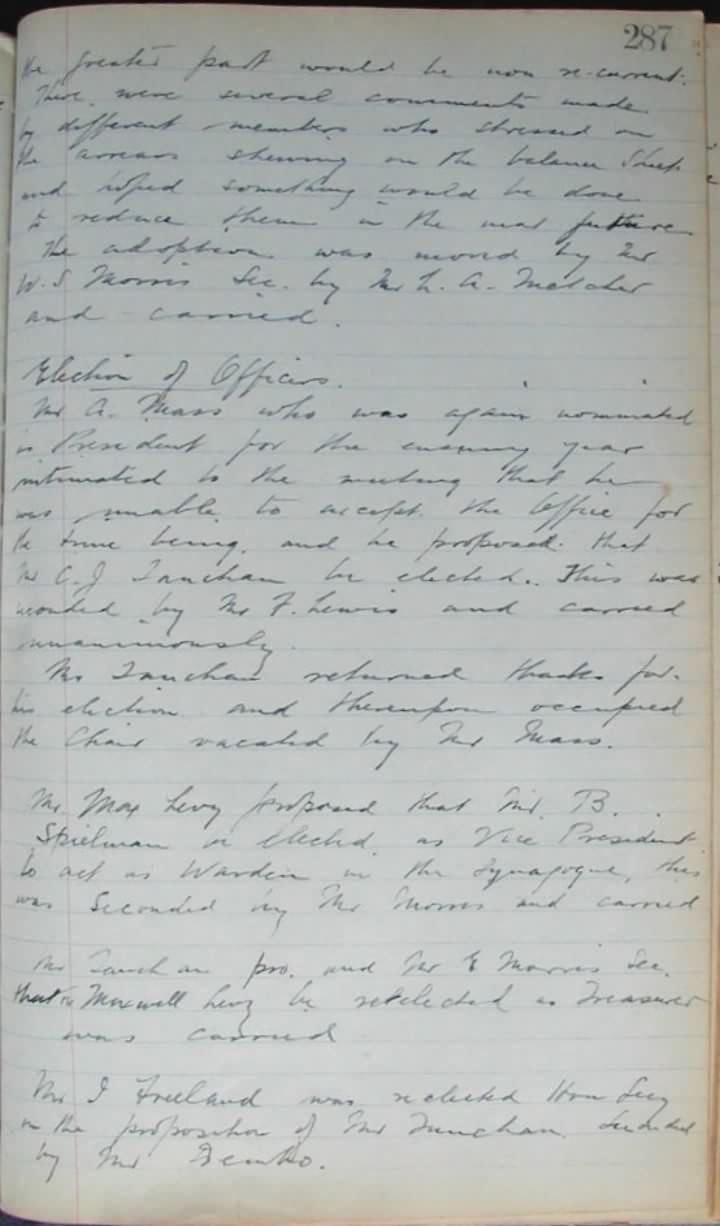 287
the greater part would be non re-current.
There were several comments made
by different members who stressed on
the arrears shewing on the balance Sheet
and hoped something would be done
to reduce them in the near future
The adoption was moved by Mr
W. S Morris Sec. by Mr L. A. Melcher
and carried.
Election of Officers.
Mr A. Mass who was again nominated
as President for the ensuing year
intimated to the meeting that he
was unable to accept the Office for
the time being, and he proposed that
Mr C. J Tanchan be elected. This was
seconded by Mr F. Lewis and carried
unanimously.
Mr Tanchan returned thanks for
his election and thereupon occupied
the Chair vacated by Mr Mass.
Mr Max Levy proposed that Mr. B.
Spielman be elected as Vice President
to act as Warden in the Synagogue, this
was Seconded by Mr Morris and carried
Mr Tanchan pro. and Mr E Morris Sec.
that Mr Maxwell Levy be reelected as Treasurer
was carried
Mr I Freeland was reelected Hon Secy
on the proposition of Mr Tanchan Seconded
by Mr